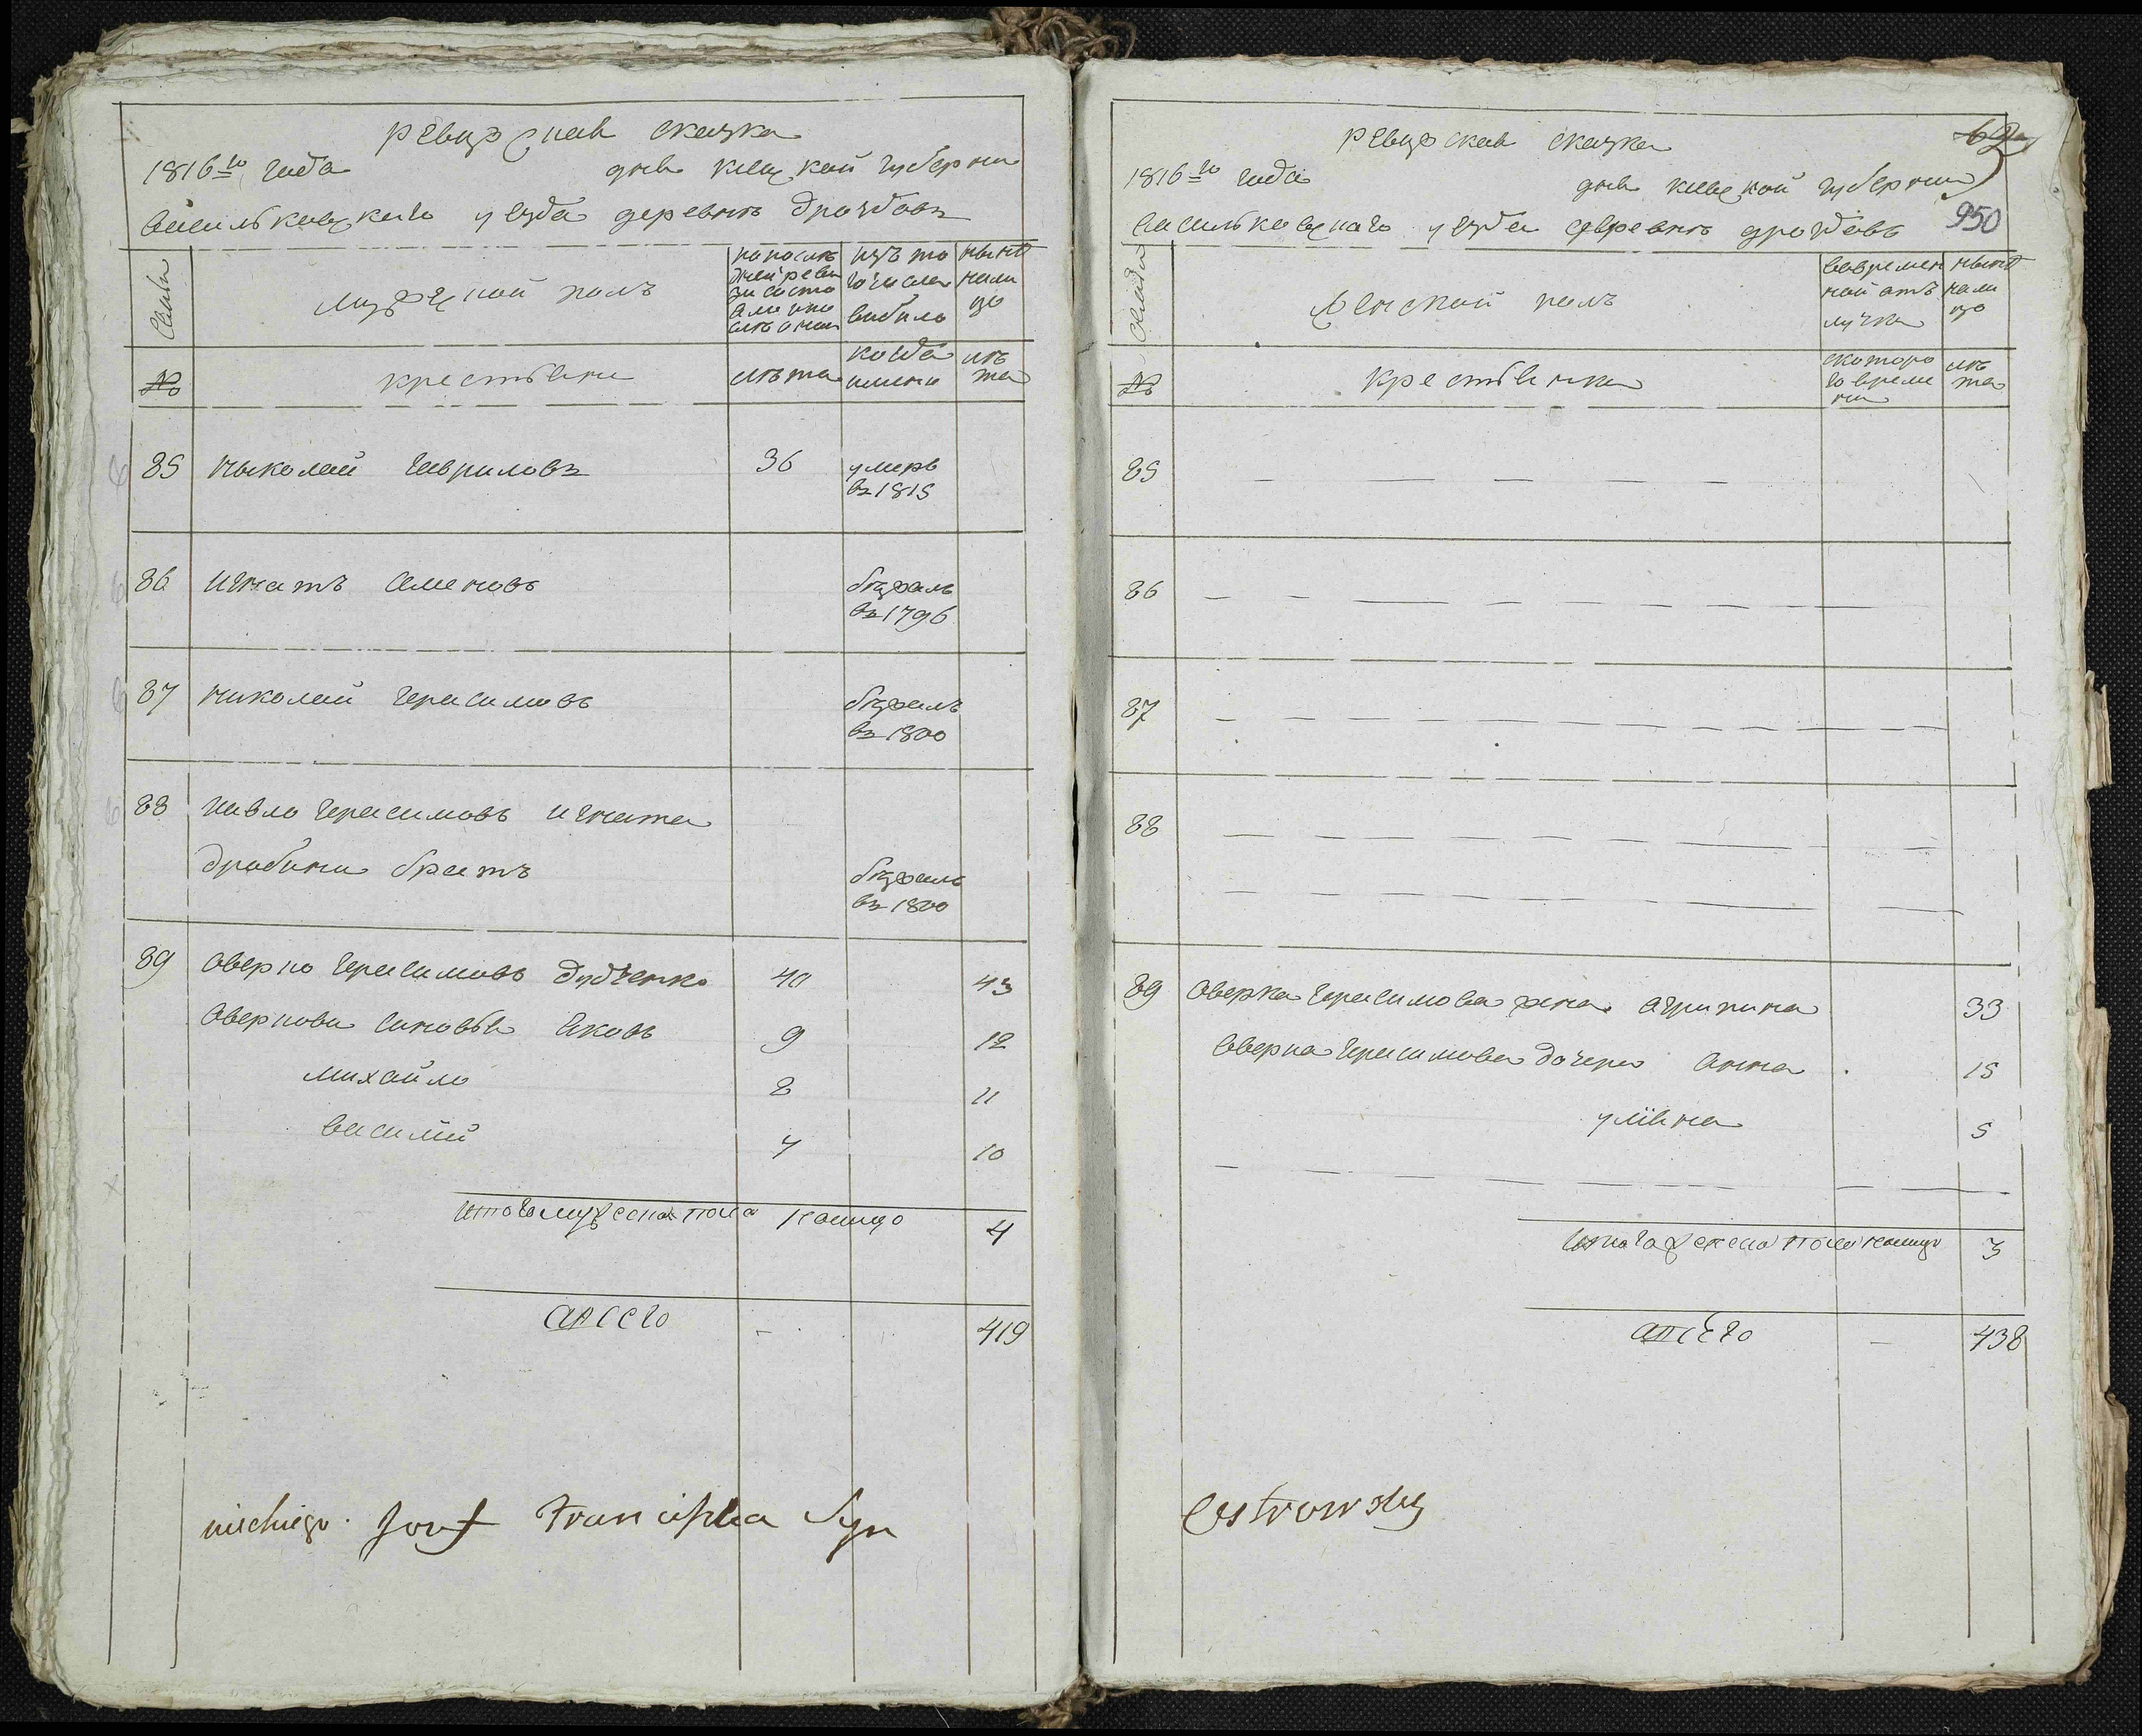 ревизская сказка
1816го года дня киевской губернии
васильковского уезда деревни дроздовъ
семьи
мужеской полъ
по последней ревизіи состояло и после онои
изъ того числа выбило
ныне налицо
№
крестьяни
лѣта
когда имянно
лѣта
85 Николай Гавриловъ 36 умеръ въ 1815
86 игнатъ Семеновъ бежалъ въ 1796
87 николай герасимовъ бежалъ въ 1800
88 павло герасимовъ игната
дробини братъ бежалъ въ 1800
89 аверко герасимовъ дудченко 40 43
аверкови синовья яковъ 9 12
михайло 8 11
василій 7 10
итого мужеска пола налицо 4
а всего - 419
Jozef Franciszka Syn
62
950
ревизская сказка
1816го года дня киевской губернии
васильковского уезда деревни дроздовъ
семьи
женской полъ
во временной отлучке
ныне налицо
№
крестьянки
с которого времени
лѣта
85
86
87
88
89 аверка герасимова жена агрипина 33
аверка герасимова дочери анна 15
уліяна 5
итого женска пола налицо 3
а всего - 438
Ostrowsky